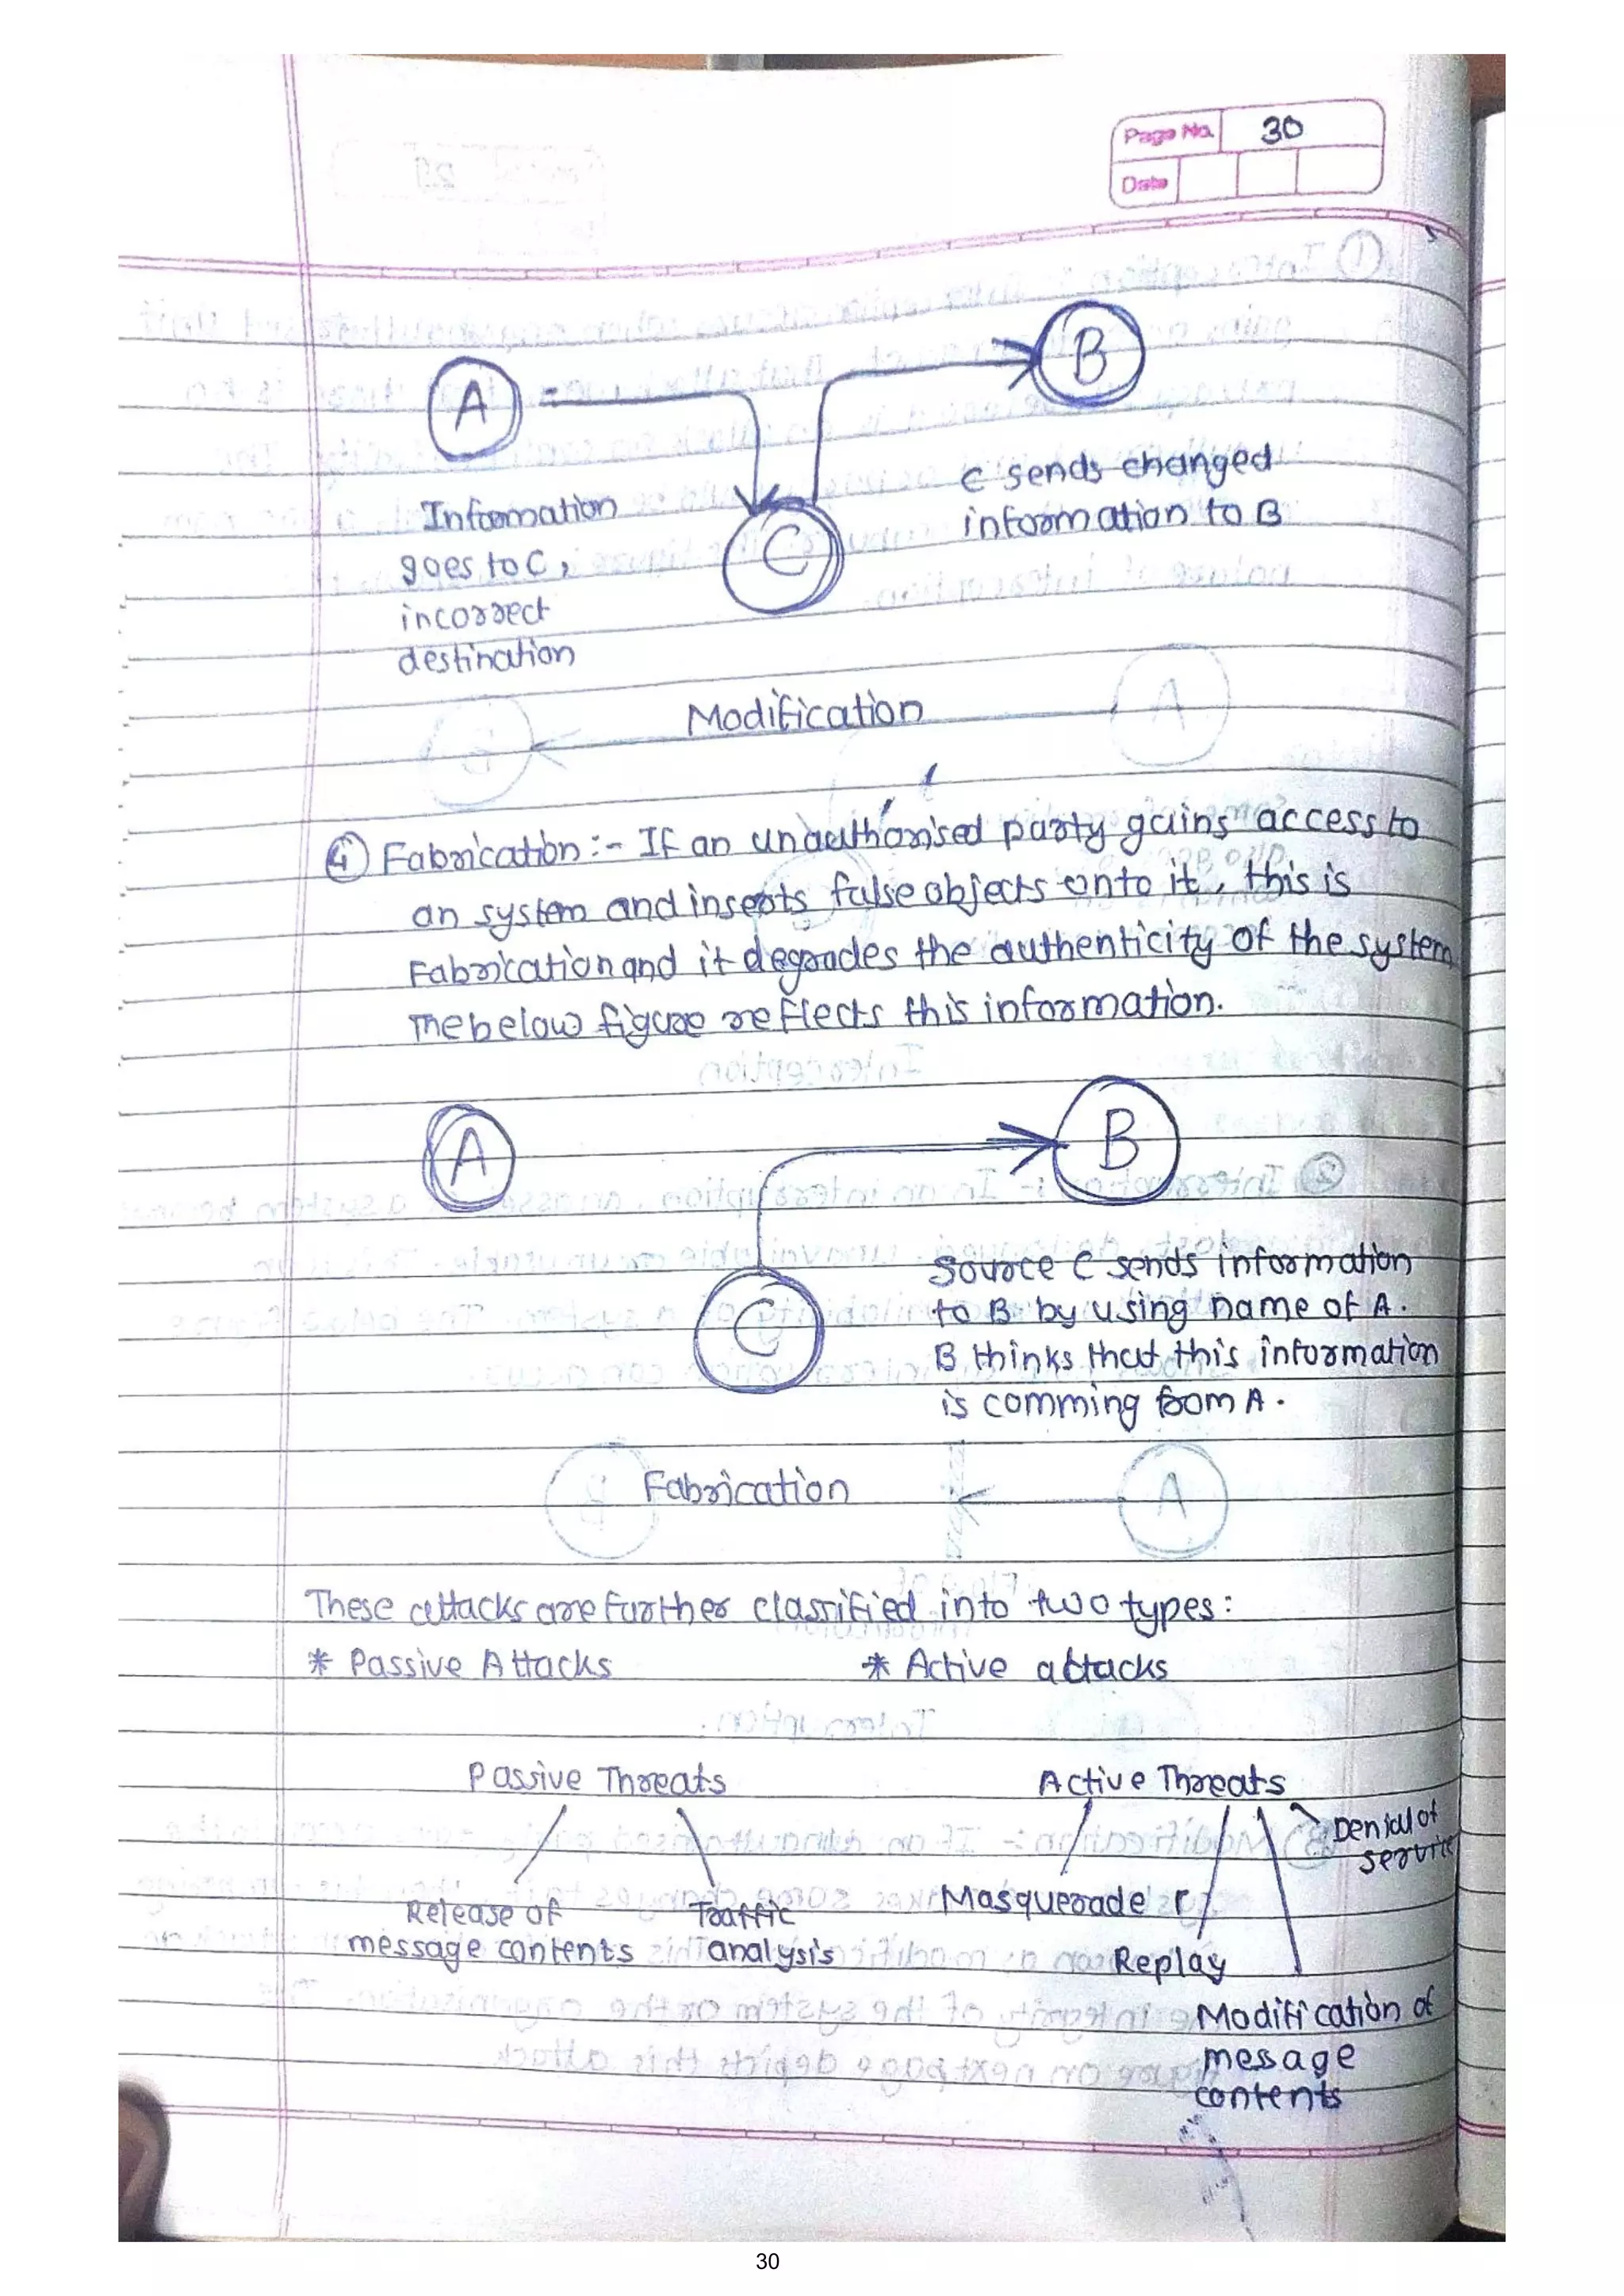 Page No. 30
Date
A
B
C
C sends changed
information to B
Information
goes to C,
incorrect
destination
Modification
④ Fabrication :- If an unauthorised party gains access to
an system and inserts false objects onto it, this is
Fabrication and it degrades the authenticity of the system
The below figure reflects this information.
A
B
C
Source C sends information
to B by using name of A.
B thinks that this information
is comming from A.
Fabrication
These attacks are further classified into two types:
* Passive Attacks * Active attacks
Passive Threats Active Threats
Denial of
service
Release of
message contents
Traffic
analysis
Masquerade
Replay
Modification of
message
contents
30